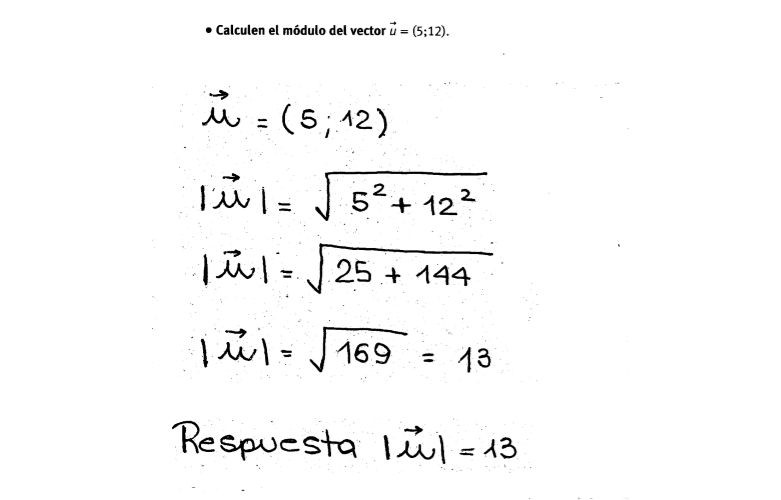 • Calculen el módulo del vector u⃗ = (5;12).
u⃗ = (5; 12)
|u⃗| = √(5² + 12²)
|u⃗| = √(25 + 144)
|u⃗| = √169 = 13
Respuesta |u⃗| = 13